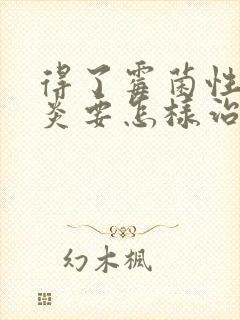 得了霉菌性
炎要怎样治
幻木楓